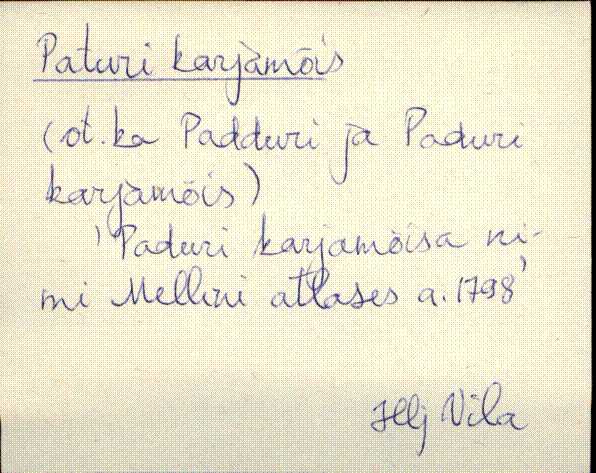 Paturi karjamõis
(ot. ka Padduri ja Paduri
karjamõis)
'Paduri karjamõisa ni-
mi Mellini atlases a. 1798'
Hlj Vila